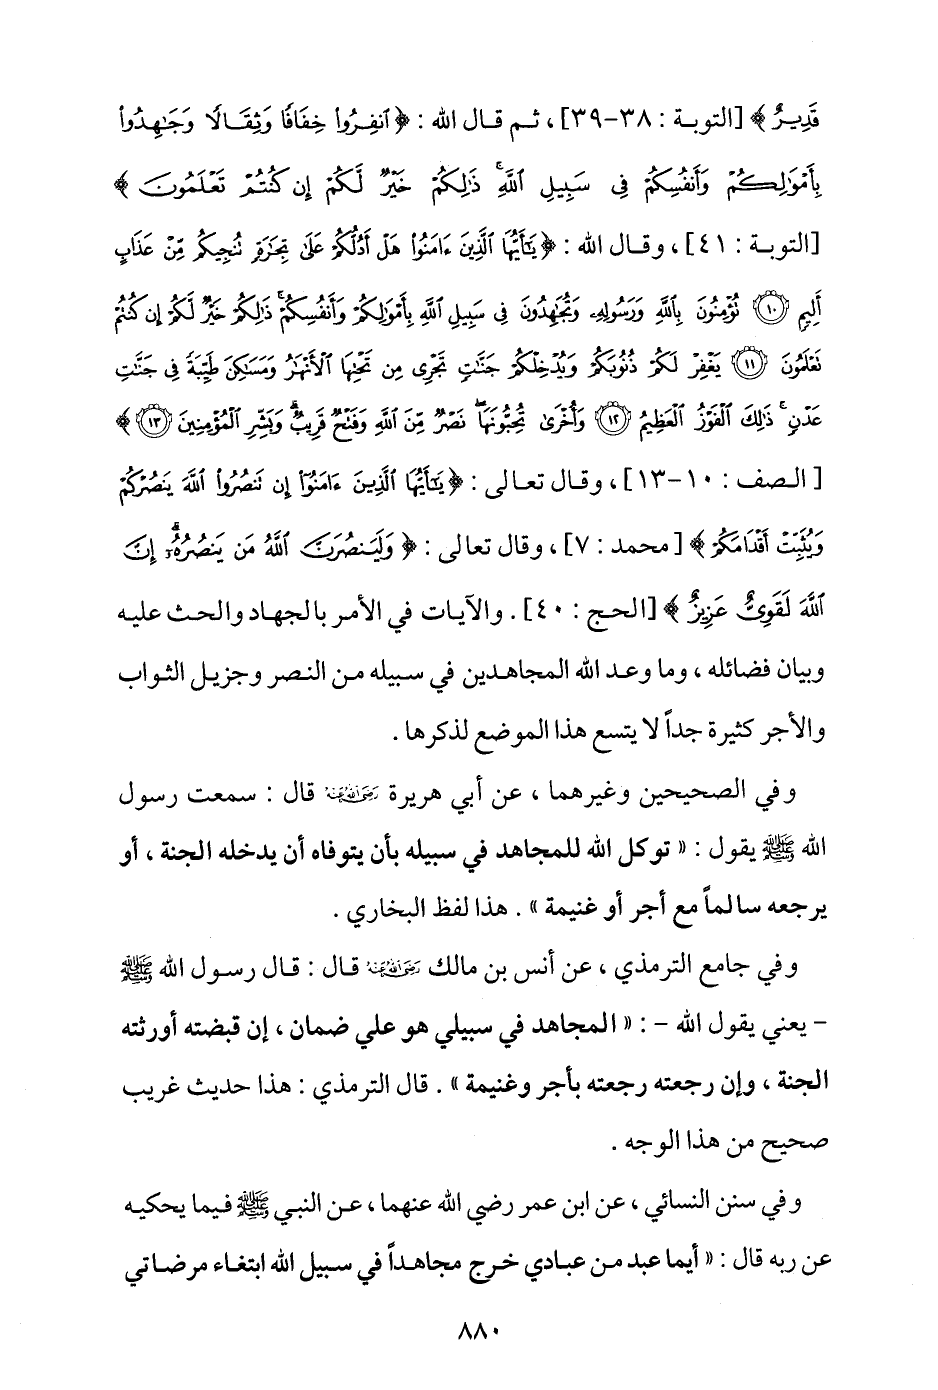 قَدِيرٌ ﴾ [التوبة : ٣٨-٣٩] ، ثم قال الله : ﴿ ٱنفِرُوا۟ خِفَافًا وَثِقَالًا وَجَٰهِدُوا۟
بِأَمْوَٰلِكُمْ وَأَنفُسِكُمْ فِى سَبِيلِ ٱللَّهِ ۚ ذَٰلِكُمْ خَيْرٌ لَّكُمْ إِن كُنتُمْ تَعْلَمُونَ ﴾
[التوبة : ٤١] ، وقال الله : ﴿ يَٰٓأَيُّهَا ٱلَّذِينَ ءَامَنُوا۟ هَلْ أَدُلُّكُمْ عَلَىٰ تِجَٰرَةٍ تُنجِيكُم مِّنْ عَذَابٍ
أَلِيمٍ ۝١٠ تُؤْمِنُونَ بِٱللَّهِ وَرَسُولِهِۦ وَتُجَٰهِدُونَ فِى سَبِيلِ ٱللَّهِ بِأَمْوَٰلِكُمْ وَأَنفُسِكُمْ ۚ ذَٰلِكُمْ خَيْرٌ لَّكُمْ إِن كُنتُمْ
تَعْلَمُونَ ۝١١ يَغْفِرْ لَكُمْ ذُنُوبَكُمْ وَيُدْخِلْكُمْ جَنَّٰتٍ تَجْرِى مِن تَحْتِهَا ٱلْأَنْهَٰرُ وَمَسَٰكِنَ طَيِّبَةً فِى جَنَّٰتِ
عَدْنٍ ۚ ذَٰلِكَ ٱلْفَوْزُ ٱلْعَظِيمُ ۝١٢ وَأُخْرَىٰ تُحِبُّونَهَا ۖ نَصْرٌ مِّنَ ٱللَّهِ وَفَتْحٌ قَرِيبٌ ۗ وَبَشِّرِ ٱلْمُؤْمِنِينَ ۝١٣ ﴾
[الصف : ١٠-١٣] ، وقال تعالى : ﴿ يَٰٓأَيُّهَا ٱلَّذِينَ ءَامَنُوٓا۟ إِن تَنصُرُوا۟ ٱللَّهَ يَنصُرْكُمْ
وَيُثَبِّتْ أَقْدَامَكُمْ ﴾ [محمد : ٧] ، وقال تعالى : ﴿ وَلَيَنصُرَنَّ ٱللَّهُ مَن يَنصُرُهُۥٓ ۗ إِنَّ
ٱللَّهَ لَقَوِىٌّ عَزِيزٌ ﴾ [الحج : ٤٠] . والآيات في الأمر بالجهاد والحث عليه
وبيان فضائله ، وما وعد الله المجاهدين في سبيله من النصر وجزيل الثواب
والأجر كثيرة جداً لا يتسع هذا الموضع لذكرها .
وفي الصحيحين وغيرهما ، عن أبي هريرة رضي الله عنه قال : سمعت رسول
الله ﷺ يقول : « توكل الله للمجاهد في سبيله بأن يتوفاه أن يدخله الجنة ، أو
يرجعه سالماً مع أجر أو غنيمة » . هذا لفظ البخاري .
وفي جامع الترمذي ، عن أنس بن مالك رضي الله عنه قال : قال رسول الله ﷺ
- يعني يقول الله - : « المجاهد في سبيلي هو علي ضمان ، إن قبضته أورثته
الجنة ، وإن رجعته رجعته بأجر وغنيمة » . قال الترمذي : هذا حديث غريب
صحيح من هذا الوجه .
وفي سنن النسائي ، عن ابن عمر رضي الله عنهما ، عن النبي ﷺ فيما يحكيه
عن ربه قال : « أيما عبد من عبادي خرج مجاهداً في سبيل الله ابتغاء مرضاتي
٨٨٠